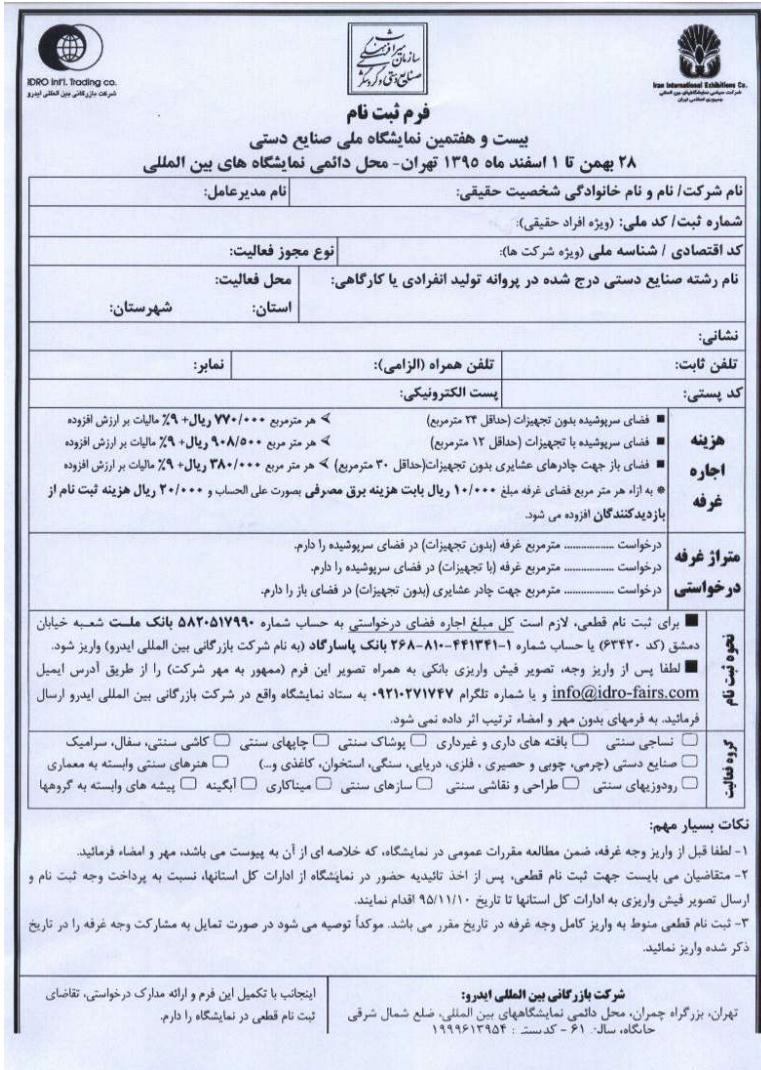 IDRO Int'l. Trading co.
شرکت بازرگانی بین المللی ایدرو
سازمان میراث فرهنگی
صنایع دستی و گردشگری
Iran International Exhibitions Co.
شرکت سهامی نمایشگاههای بین المللی
جمهوری اسلامی ایران
فرم ثبت نام
بیست و هفتمین نمایشگاه ملی صنایع دستی
۲۸ بهمن تا ۱ اسفند ماه ۱۳۹۵ تهران- محل دائمی نمایشگاه های بین المللی
نام شرکت/ نام و نام خانوادگی شخصیت حقیقی: نام مدیرعامل:
شماره ثبت/ کد ملی: (ویژه افراد حقیقی):
کد اقتصادی / شناسه ملی (ویژه شرکت ها): نوع مجوز فعالیت:
نام رشته صنایع دستی درج شده در پروانه تولید انفرادی یا کارگاهی: محل فعالیت:
استان: شهرستان:
نشانی:
تلفن ثابت: تلفن همراه (الزامی): نمابر:
کد پستی: پست الکترونیکی:
هزینه اجاره غرفه
■ فضای سرپوشیده بدون تجهیزات (حداقل ۲۴ مترمربع) ➢ هر مترمربع ۷۷۰/۰۰۰ ریال+ ۹٪ مالیات بر ارزش افزوده
■ فضای سرپوشیده با تجهیزات (حداقل ۱۲ مترمربع) ➢ هر متر مربع ۹۰۸/۵۰۰ ریال+ ۹٪ مالیات بر ارزش افزوده
■ فضای باز جهت چادرهای عشایری بدون تجهیزات(حداقل ۳۰ مترمربع) ➢ هر متر مربع ۳۸۰/۰۰۰ ریال+ ۹٪ مالیات بر ارزش افزوده
※ به ازاء هر متر مربع فضای غرفه مبلغ ۱۰/۰۰۰ ریال بابت هزینه برق مصرفی بصورت علی الحساب و ۲۰/۰۰۰ ریال هزینه ثبت نام از
بازدیدکنندگان افزوده می شود.
متراژ غرفه درخواستی
درخواست ................. مترمربع غرفه (بدون تجهیزات) در فضای سرپوشیده را دارم.
درخواست ................. مترمربع غرفه (با تجهیزات) در فضای سرپوشیده را دارم.
درخواست ................. مترمربع جهت چادر عشایری (بدون تجهیزات) در فضای باز را دارم.
نحوه ثبت نام
■ برای ثبت نام قطعی، لازم است کل مبلغ اجاره فضای درخواستی به حساب شماره ۵۸۲۰۵۱۷۹۹۰ بانک ملت شعبه خیابان
دمشق (کد ۶۳۴۲۰) یا حساب شماره ۱-۴۴۱۳۴۱-۸۱۰-۲۶۸ بانک پاسارگاد (به نام شرکت بازرگانی بین المللی ایدرو) واریز شود.
■ لطفا پس از واریز وجه، تصویر فیش واریزی بانکی به همراه تصویر این فرم (ممهور به مهر شرکت) را از طریق آدرس ایمیل
info@idro-fairs.com و یا شماره تلگرام ۰۹۲۱۰۲۷۱۷۴۷ به ستاد نمایشگاه واقع در شرکت بازرگانی بین المللی ایدرو ارسال
فرمائید. به فرمهای بدون مهر و امضاء ترتیب اثر داده نمی شود.
گروه فعالیت
☐ نساجی سنتی ☐ بافته های داری و غیرداری ☐ پوشاک سنتی ☐ چاپهای سنتی ☐ کاشی سنتی، سفال، سرامیک
☐ صنایع دستی (چرمی، چوبی و حصیری ، فلزی، دریایی، سنگی، استخوان، کاغذی و...) ☐ هنرهای سنتی وابسته به معماری
☐ رودوزیهای سنتی ☐ طراحی و نقاشی سنتی ☐ سازهای سنتی ☐ میناکاری ☐ آبگینه ☐ پیشه های وابسته به گروهها
نکات بسیار مهم:
۱- لطفا قبل از واریز وجه غرفه، ضمن مطالعه مقررات عمومی در نمایشگاه، که خلاصه ای از آن به پیوست می باشد، مهر و امضاء فرمائید.
۲- متقاضیان می بایست جهت ثبت نام قطعی، پس از اخذ تائیدیه حضور در نمایشگاه از ادارات کل استانها، نسبت به پرداخت وجه ثبت نام و
ارسال تصویر فیش واریزی به ادارات کل استانها تا تاریخ ۹۵/۱۱/۱۰ اقدام نمایند.
۳- ثبت نام قطعی منوط به واریز کامل وجه غرفه در تاریخ مقرر می باشد. موکداً توصیه می شود در صورت تمایل به مشارکت وجه غرفه را در تاریخ
ذکر شده واریز نمائید.
شرکت بازرگانی بین المللی ایدرو:
تهران، بزرگراه چمران، محل دائمی نمایشگاههای بین المللی، ضلع شمال شرقی
جایگاه، سالن ۶۱ - کدپستی: ۱۹۹۹۶۱۳۹۵۴
اینجانب با تکمیل این فرم و ارائه مدارک درخواستی، تقاضای
ثبت نام قطعی در نمایشگاه را دارم.